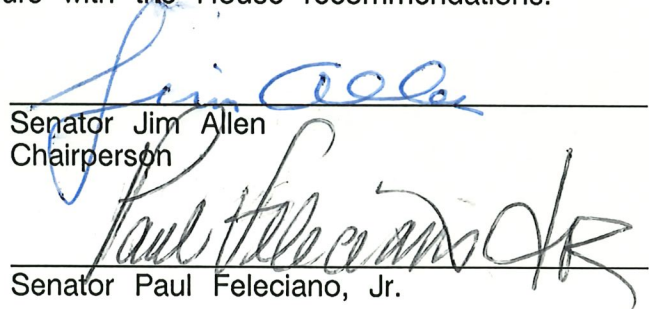 with the House recommendations.
Jim Allen
Senator Jim Allen
Chairperson
Paul Feleciano JR
Senator Paul Feleciano, Jr.